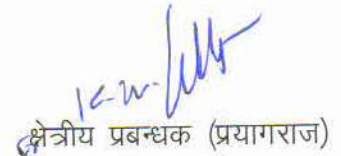 क्षेत्रीय प्रबन्धक (प्रयागराज)